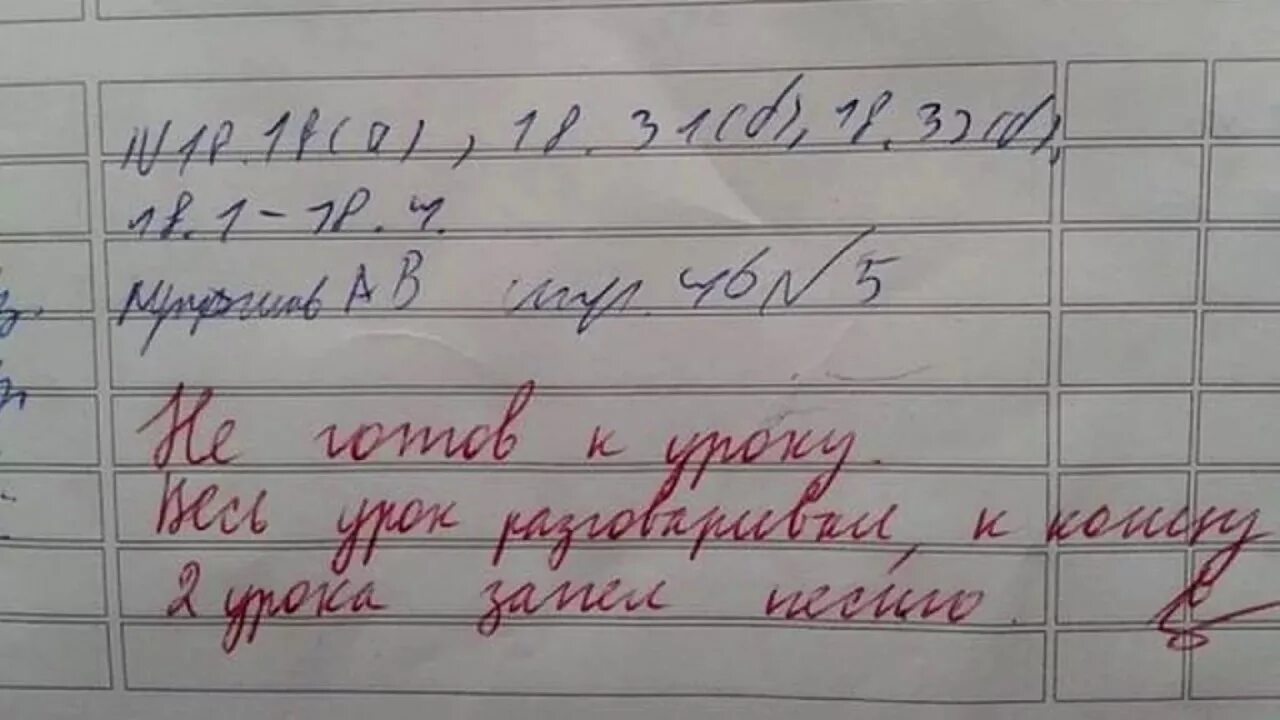 N 18.18(а), 18.31(d), 18.32(d),
18.1-18.4.
АВ стр. 46 N 5
Не готов к уроку.
Весь урок разговаривал, к концу
2 урока запел песню.